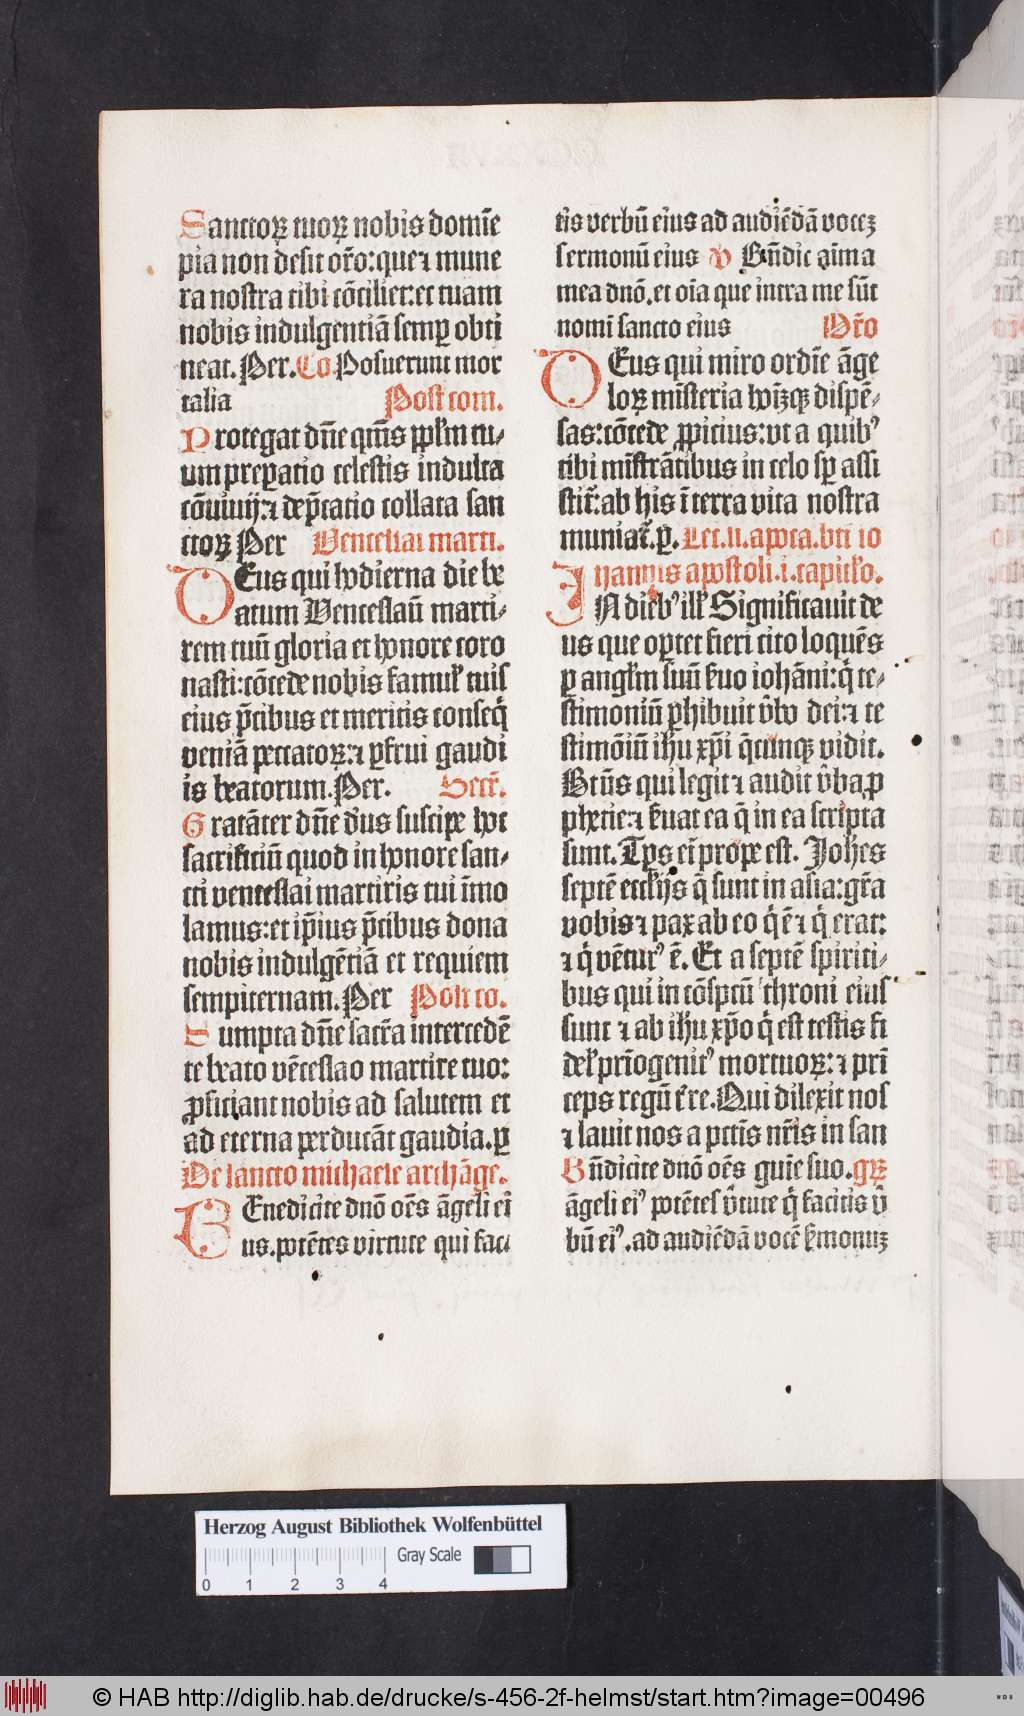 Sanctoꝝ tuoꝝ nobis domīe
pia non desit or̄o: que ⁊ mune
ra nostra tibi cōciliet: et tuam
nobis indulgentiā semꝑ obti
neat. Per. Co. Posuerunt mor
talia Post com.
Protegat dn̄e qm̄s ꝓpl̄m tu⸗
um preꝑatio celestis indulta
cōuiuij: ⁊ dep̄catio collata san
ctoꝝ Per Venceslai marti.
DEus qui hodierna die be
atum Venceslaū marti⸗
rem tuū gloria et honore coro
nasti: cōcede nobis famul̓ tuis
eius p̄cibus et meritis conseq̄
veniā peccatoꝝ: ⁊ ꝑfrui gaudi
is beatorum. Per. Secr̄.
Gratāter dn̄e d̄us suscipe hoc
sacrificiū quod in honore san⸗
cti venceslai martiris tui īmo
lamus: et ip̄ius p̄cibus dona
nobis indulgētiā et requiem
sempiternam. Per Post co.
Sumpta dn̄e sacr̄a intercedē
te beato vēceslao martire tuo:
ꝓficiant nobis ad salutem et
ad eterna perducāt gaudia. ꝑ
De sancto michaele archāge.
BEnedicite dnō oēs āgeli ei
us. potētes virtute qui faci
tis verbū eius ad audiēdā vocez
sermonū eius v Bn̄dic aīm a
mea dnō. et oīa que intra me sūt
nomī sancto eius Or̄o
DEus qui miro ordīe āge
loꝝ mīsteria hoīzqꝫ dispē⸗
sas: cōcede ꝓpicius: vt a quibꝰ
tibi mīstrātibus in celo sꝑ assi
stit̄: ab his ī terra vita nostra
muniat̄. ꝑ. Lec. li. apoca. bt̄i io
hannis apostoli. i. capitl̓o.
IN diebꝰ ill̓ Significauit de
us que oꝑtet fieri cito loquēs
ꝑ angl̓m suū s̓uo iohāni: q̇ te⸗
stimoniū ꝑhibuit v̄bo dei: ⁊ te
stimōiū ih̄u xp̄i q̄cunqꝫ vidit.
Bt̄ūs qui legit ⁊ audit v̄ba ꝓ
phetie: ⁊ s̓uat ea q̄ in ea scripta
sunt. Tp̄s em̄ prope est. Joh̄es
septē eccl̓ijs q̄ sunt in asia: gr̄a
vobis ⁊ pax ab eo q̇ ē ⁊ q̇ erat:
⁊ q̇ vēturꝰ ē. Et a septē spiriti⸗
bus qui in cōspctū throni eius
sunt ⁊ ab ih̄u xp̄o q̇ est testis fi
del̓ prīogenitꝰ mortuoꝝ: ⁊ pri
ceps regū t̓re. Qui dilexit nos
⁊ lauit nos a pctīs nr̄is in san
Bn̄dicite dnō oēs guīe suo. gꝝ
āgeli eiꝰ potētes v̄tute q̇ facitis v̄
bū eiꝰ. ad audiēdā vocē s̓monuꝫ
Herzog August Bibliothek Wolfenbüttel
Gray Scale
0 1 2 3 4
© HAB http://diglib.hab.de/drucke/s-456-2f-helmst/start.htm?image=00496